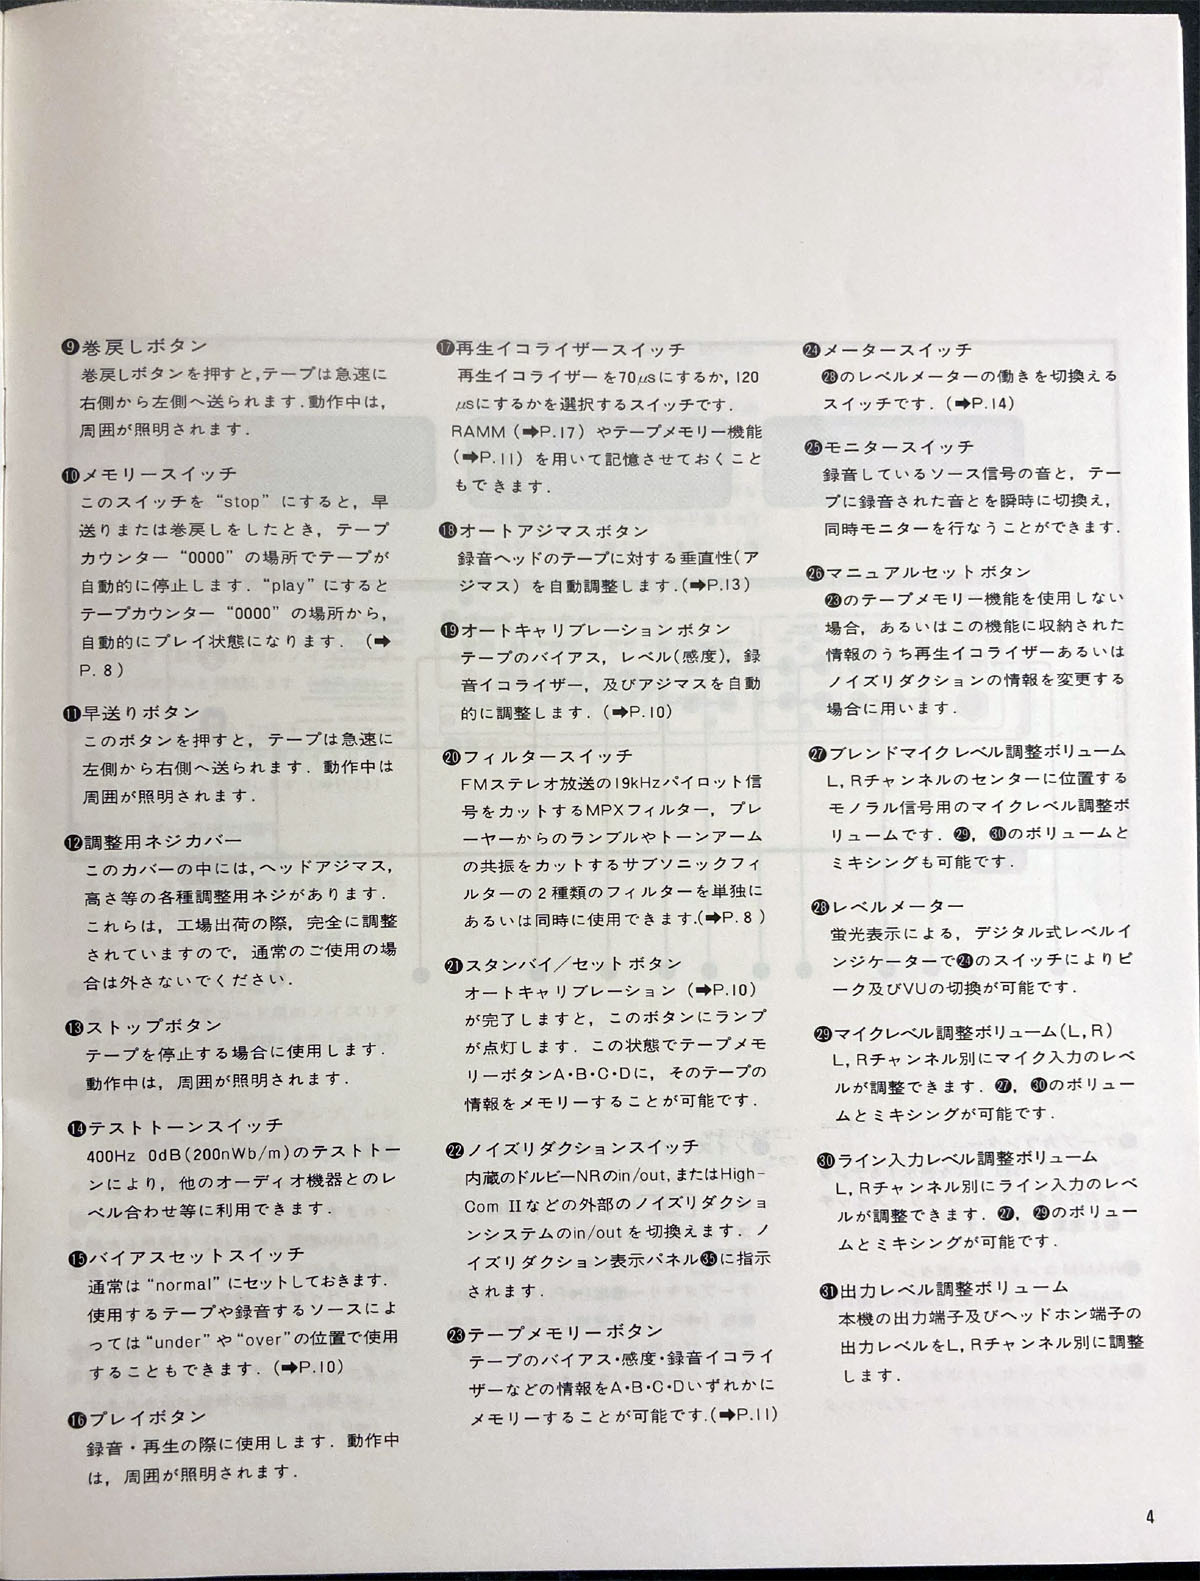 ❾巻戻しボタン
巻戻しボタンを押すと,テープは急速に
右側から左側へ送られます.動作中は,
周囲が照明されます.
❿メモリースイッチ
このスイッチを“stop”にすると,早
送りまたは巻戻しをしたとき,テープ
カウンター“0000”の場所でテープが
自動的に停止します.“play”にすると
テープカウンター“0000”の場所から,
自動的にプレイ状態になります. (➡
P.8)
⓫早送りボタン
このボタンを押すと,テープは急速に
左側から右側へ送られます.動作中は
周囲が照明されます.
⓬調整用ネジカバー
このカバーの中には,ヘッドアジマス,
高さ等の各種調整用ネジがあります.
これらは,工場出荷の際,完全に調整
されていますので,通常のご使用の場
合は外さないでください.
⓭ストップボタン
テープを停止する場合に使用します.
動作中は,周囲が照明されます.
⓮テストトーンスイッチ
400Hz 0dB(200nWb/m)のテストトー
ンにより,他のオーディオ機器とのレ
ベル合わせ等に利用できます.
⓯バイアスセットスイッチ
通常は“normal”にセットしておきます.
使用するテープや録音するソースによ
っては“under”や“over”の位置で使用
することもできます.(➡P.10)
⓰プレイボタン
録音・再生の際に使用します.動作中
は,周囲が照明されます.
⓱再生イコライザースイッチ
再生イコライザーを70μsにするか,120
μsにするかを選択するスイッチです.
RAMM(➡P.17)やテープメモリー機能
(➡P.11)を用いて記憶させておくこと
もできます.
⓲オートアジマスボタン
録音ヘッドのテープに対する垂直性(ア
ジマス)を自動調整します.(➡P.13)
⓳オートキャリブレーションボタン
テープのバイアス,レベル(感度),録
音イコライザー,及びアジマスを自動
的に調整します.(➡P.10)
⓴フィルタースイッチ
FMステレオ放送の19kHzパイロット信
号をカットするMPXフィルター,プレ
ーヤーからのランブルやトーンアーム
の共振をカットするサブソニックフィ
ルターの2種類のフィルターを単独に
あるいは同時に使用できます.(➡P.8)
㉑スタンバイ/セットボタン
オートキャリブレーション(➡P.10)
が完了しますと,このボタンにランプ
が点灯します.この状態でテープメモ
リーボタンA・B・C・Dに,そのテープの
情報をメモリーすることが可能です.
㉒ノイズリダクションスイッチ
内蔵のドルビーNRのin/out,またはHigh-
Com IIなどの外部のノイズリダクショ
ンシステムのin/outを切換えます.ノ
イズリダクション表示パネル㉟に指示
されます.
㉓テープメモリーボタン
テープのバイアス・感度・録音イコライ
ザーなどの情報をA・B・C・Dいずれかに
メモリーすることが可能です.(➡P.11)
㉔メータースイッチ
㉘のレベルメーターの働きを切換える
スイッチです.(➡P.14)
㉕モニタースイッチ
録音しているソース信号の音と,テー
プに録音された音とを瞬時に切換え,
同時モニターを行なうことができます.
㉖マニュアルセットボタン
㉓のテープメモリー機能を使用しない
場合,あるいはこの機能に収納された
情報のうち再生イコライザーあるいは
ノイズリダクションの情報を変更する
場合に用います.
㉗ブレンドマイクレベル調整ボリューム
L,Rチャンネルのセンターに位置する
モノラル信号用のマイクレベル調整ボ
リュームです.㉙,㉚のボリュームと
ミキシングも可能です.
㉘レベルメーター
蛍光表示による,デジタル式レベルイ
ンジケーターで㉔のスイッチによりピ
ーク及びVUの切換が可能です.
㉙マイクレベル調整ボリューム(L,R)
L,Rチャンネル別にマイク入力のレベ
ルが調整できます.㉗,㉚のボリュー
ムとミキシングが可能です.
㉚ライン入力レベル調整ボリューム
L,Rチャンネル別にライン入力のレベ
ルが調整できます.㉗,㉙のボリュー
ムとミキシングが可能です.
㉛出力レベル調整ボリューム
本機の出力端子及びヘッドホン端子の
出力レベルをL,Rチャンネル別に調整
します.
4